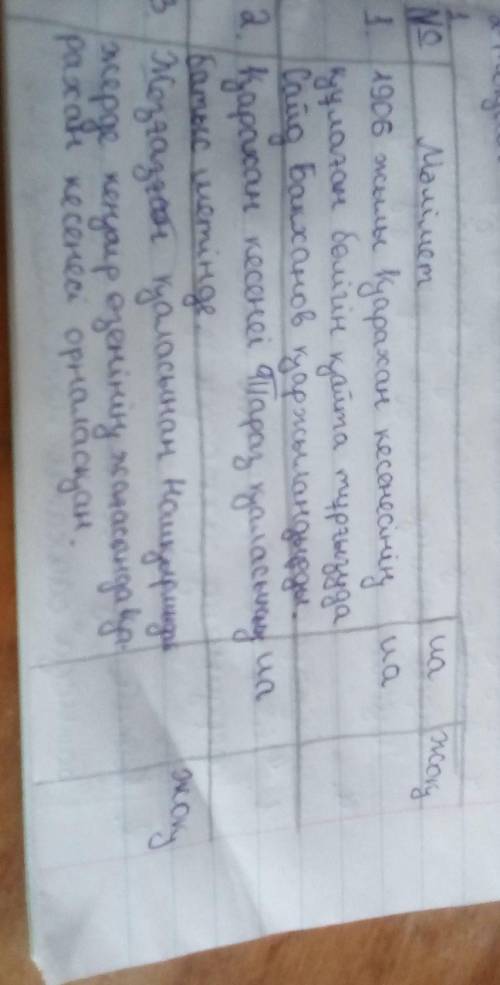 № Мәлімет иа жоқ
1 1906 жылы Қарахан кесенесінің иа
құлаған бөлігін қайта тұрғызуда
Сайд Бакханов қаржыландырды.
2. Қарахан кесенеі Тараз қаласының иа
батыс шетінде.
3 Жезқазған қаласынан жоқ
жерде кеңгір өзенінің жағасында Қа-
рахан кесенесі орналасқан.